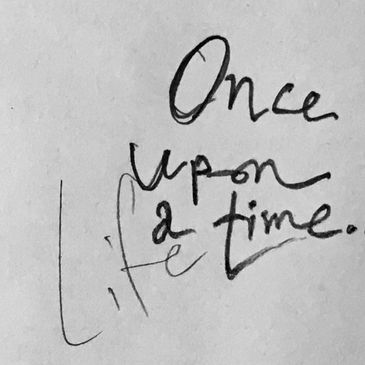 Once
upon
a time.
Life